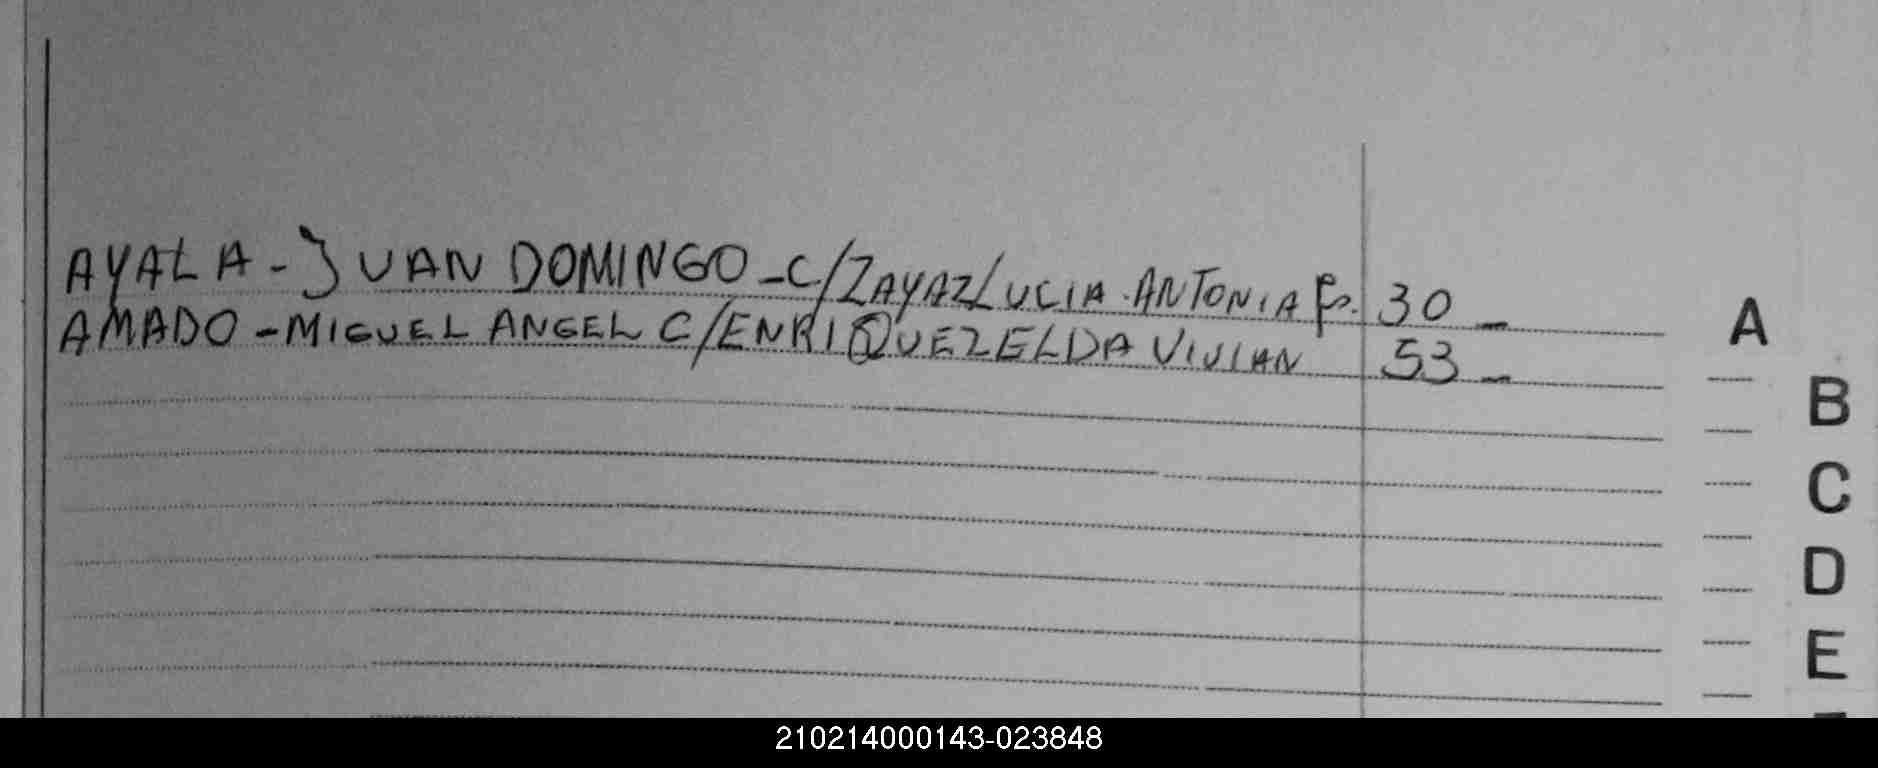 AYALA - JUAN DOMINGO - C/ZAYAZ LUCIA ANTONIA Fs. 30 _
AMADO - MIGUEL ANGEL C/ENRIQUEZ ELDA VIVIAN 53 _
A
B
C
D
E
210214000143-023848